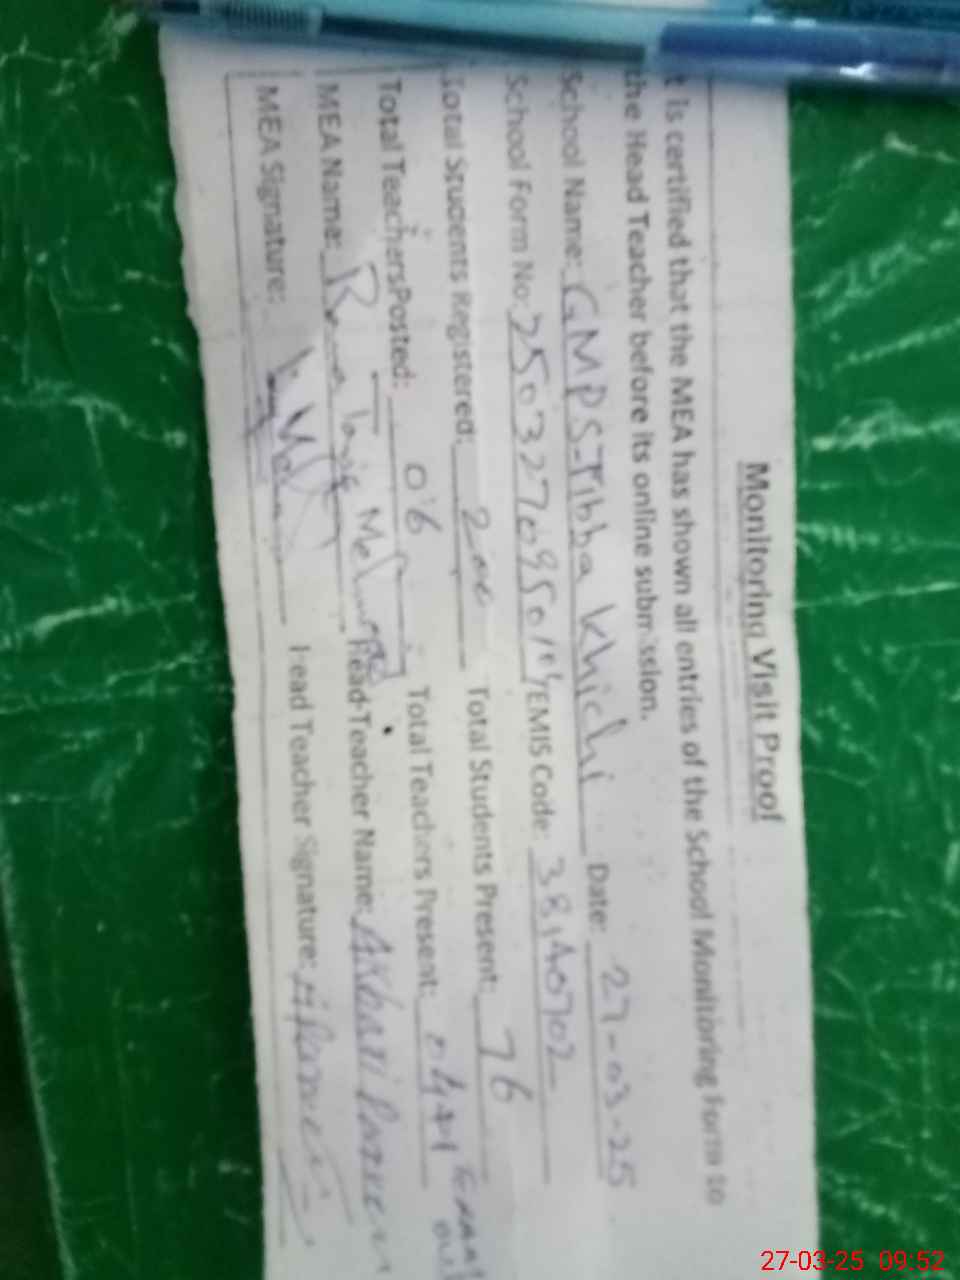 Monitoring Visit Proof
t is certified that the MEA has shown all entries of the School Monitoring Form to
the Head Teacher before its online submission.
School Name: GMPS-Tibba Khichi Date: 27-03-25
School Form No: EMIS Code: 38140702
Total Students Registered: Total Students Present: 76
Total Teachers Posted: 06 Total Teachers Present: 04+1
MEA Name: Rana Head Teacher Name: Akhari Parveen
MEA Signature: Head Teacher Signature:
27-03-25 09:52